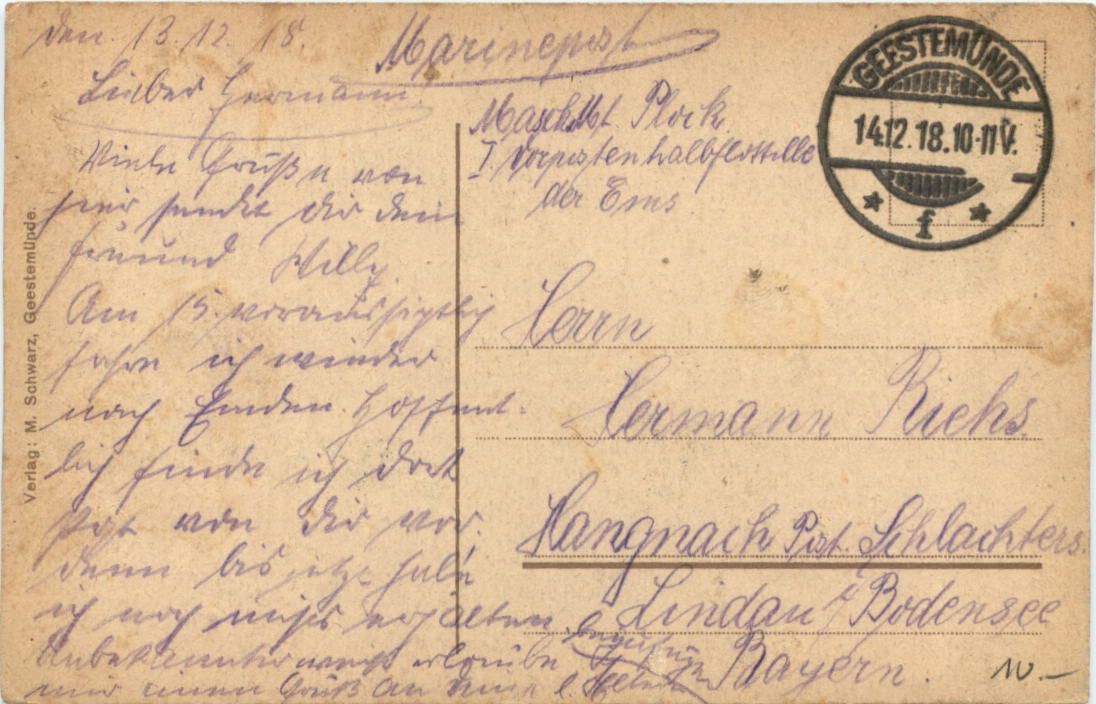 den 13.12.18.
Marinepost
Lieber Hermann
Viele Grüße von
hier sendet dir dein
Freund Willy.
Am 15. voraussichtlich
fahre ich wieder
nach Emden. Hoffent-
lich finde ich dort
Post von dir vor,
denn bis jetzt habe
ich noch nichts erhalten.
Unbekannterweise erlaube
mir einen Gruß an deine l.
Masch. Plock
I. Vorpostenhalbflottille
der Ems
GEESTEMÜNDE
14.12.18.10-11V.
* f *
Herrn
Hermann Riehs
Hangnach Post. Schlachters.
Lindau i/Bodensee
Bayern.
10.-
Verlag: M. Schwarz, Geestemünde.